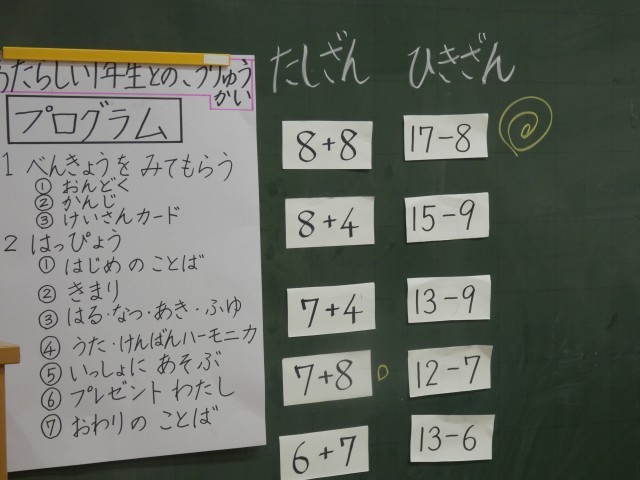 あたらしい1年生との こうりゅう
かい
プログラム
1 べんきょうを みてもらう
① おんどく
② かんじ
③ けいさんカード
2 はっぴょう
① はじめ の ことば
② きまり
③ はる・なつ・あき・ふゆ
④ うた・けんばんハーモニカ
⑤ いっしょに あそぶ
⑥ プレゼント わたし
⑦ おわりの ことば
たしざん
8+8
8+4
7+4
7+8
6+7
ひきざん
17-8
15-9
13-9
12-7
13-6